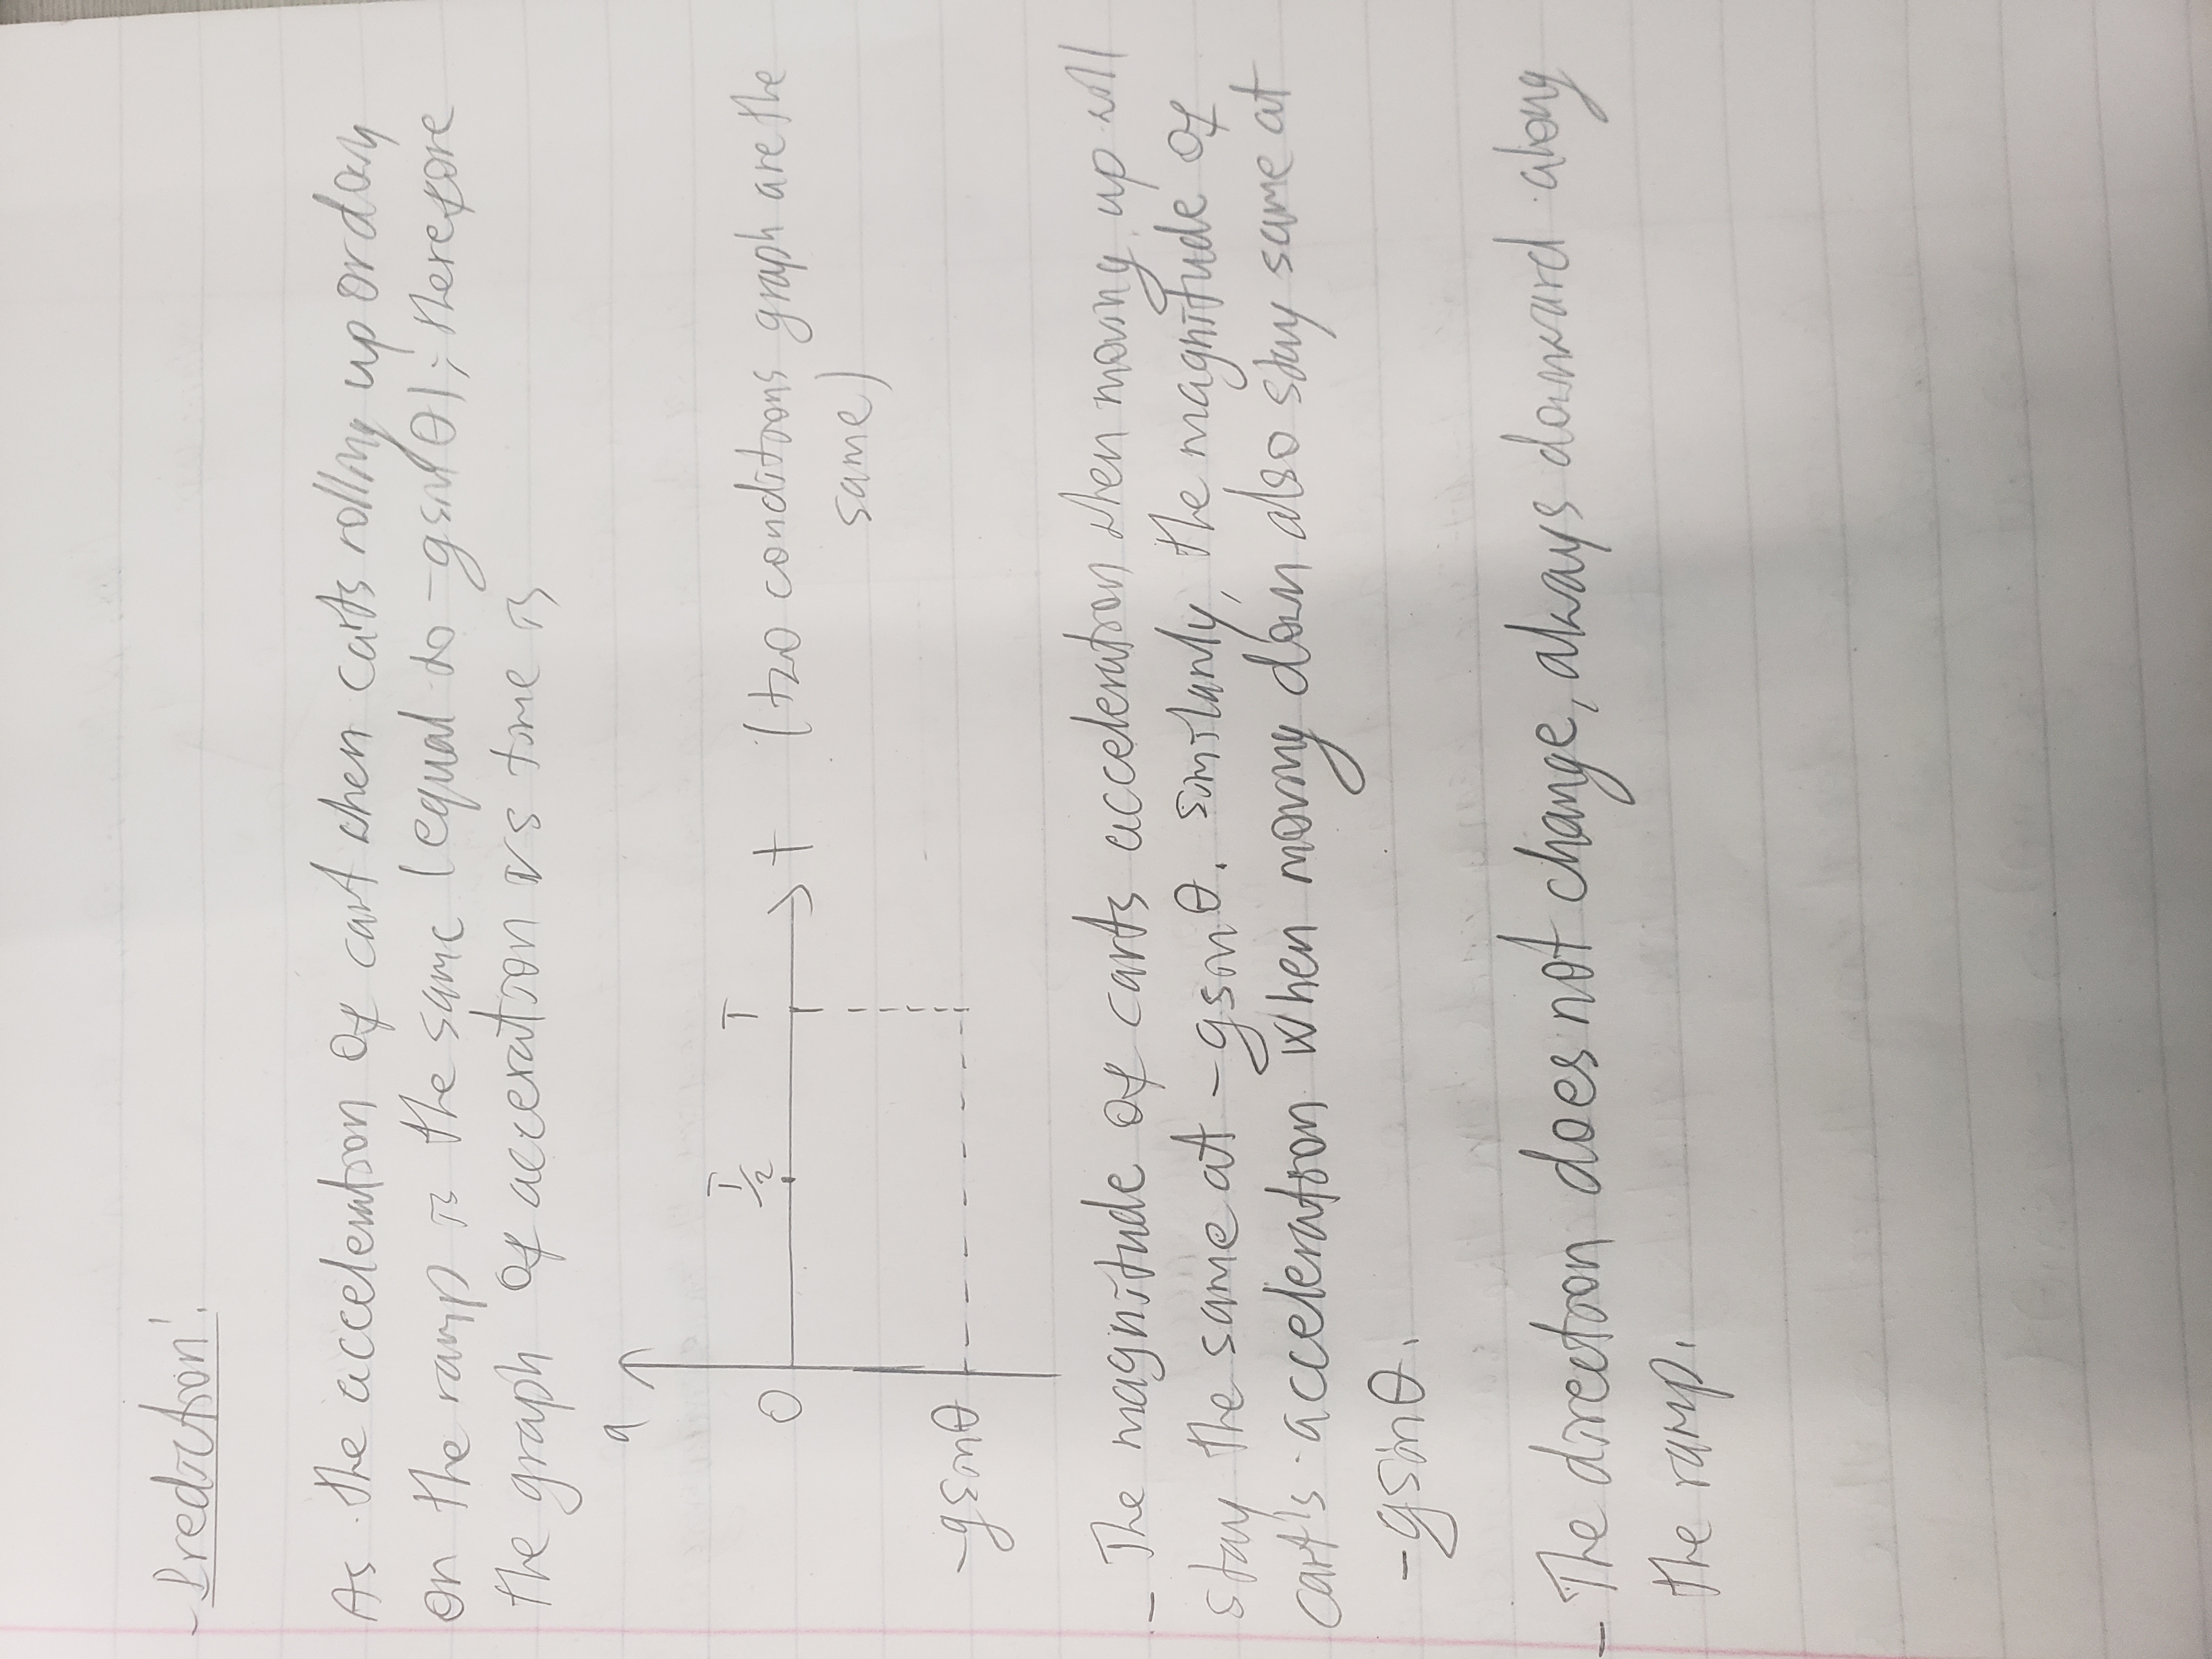 - Prediction:
As the acceleration of cart when carts rolling up or down
on the ramp is the same (equal to -gsinθ); therefore
the graph of acceration vs time is
a
T/2 T
0 t (two conditions graph are the
same)
-gsinθ
- The magnitude of carts acceleration when moving up will
stay the same at -gsinθ. Similarly, the magnitude of
cart's acceleration when moving down also stay same at
-gsinθ.
- The direction does not change, always downward along
the ramp.